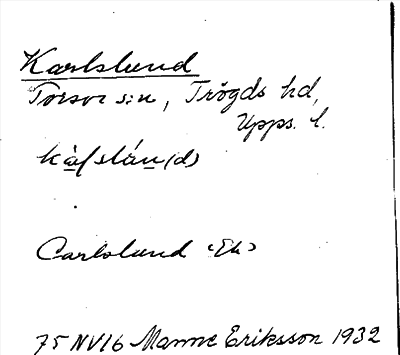 Karlslund
Torsvi s:n, Trögds hd,
Upps. l.
kà̱ɭsláṉ(d)
Carlslund (Ek)
75 NV16 Manne Eriksson 1932